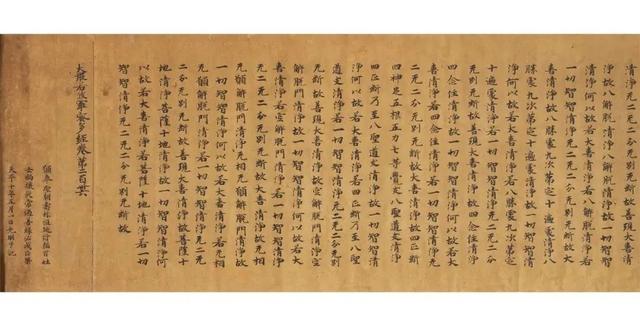 清淨无二无二分无別无斷故善現大喜清
淨故八解脫清淨八解脫清淨故一切智智
清淨何以故若大喜清淨若八解脫清淨若
一切智智清淨无二无二分无別无斷故大
喜清淨故八勝處九次第定十遍處清淨八
勝處九次第定十遍處清淨故一切智智清
淨何以故若大喜清淨若八勝處九次第定
十遍處清淨若一切智智清淨无二无二分
无別无斷故善現大喜清淨故四念住清淨
四念住清淨故一切智智清淨何以故若大
喜清淨若四念住清淨若一切智智清淨无
二无二分无別无斷故大喜清淨故四正斷
四神足五根五力七等覺支八聖道支清淨
四正斷乃至八聖道支清淨故一切智智清
淨何以故若大喜清淨若四正斷乃至八聖
道支清淨若一切智智清淨无二无二分无別
无斷故善現大喜清淨故空解脫門清淨空
解脫門清淨故一切智智清淨何以故若大
喜清淨若空解脫門清淨若一切智智清淨
无二无二分无別无斷故大喜清淨故无相
无願解脫門清淨无相无願解脫門清淨故
一切智智清淨何以故若大喜清淨若无相
无願解脫門清淨若一切智智清淨无二无
二分无別无斷故善現大喜清淨故菩薩十
地清淨菩薩十地清淨故一切智智清淨何
以故若大喜清淨若菩薩十地清淨若一切
智智清淨无二无二分无別无斷故
大般若波羅蜜多經卷第二百廿六